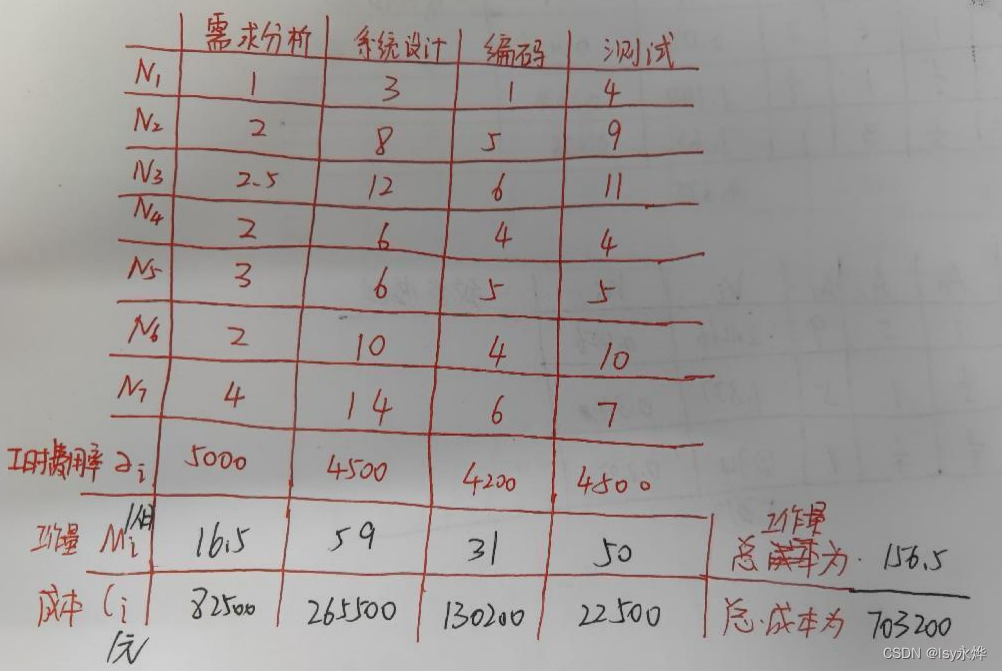 需求分析 系统设计 编码 测试
N1 1 3 1 4
N2 2 8 5 9
N3 2.5 12 6 11
N4 2 6 4 4
N5 3 6 5 5
N6 2 10 4 10
N7 4 14 6 7
工时费用率 ai 5000 4500 4200 4500
工作量 Mi 16.5 59 31 50 工作量
总 为 156.5
成本 Ci 82500 265500 130200 22500 总成本为 703200
/元
CSDN @lsy永烨